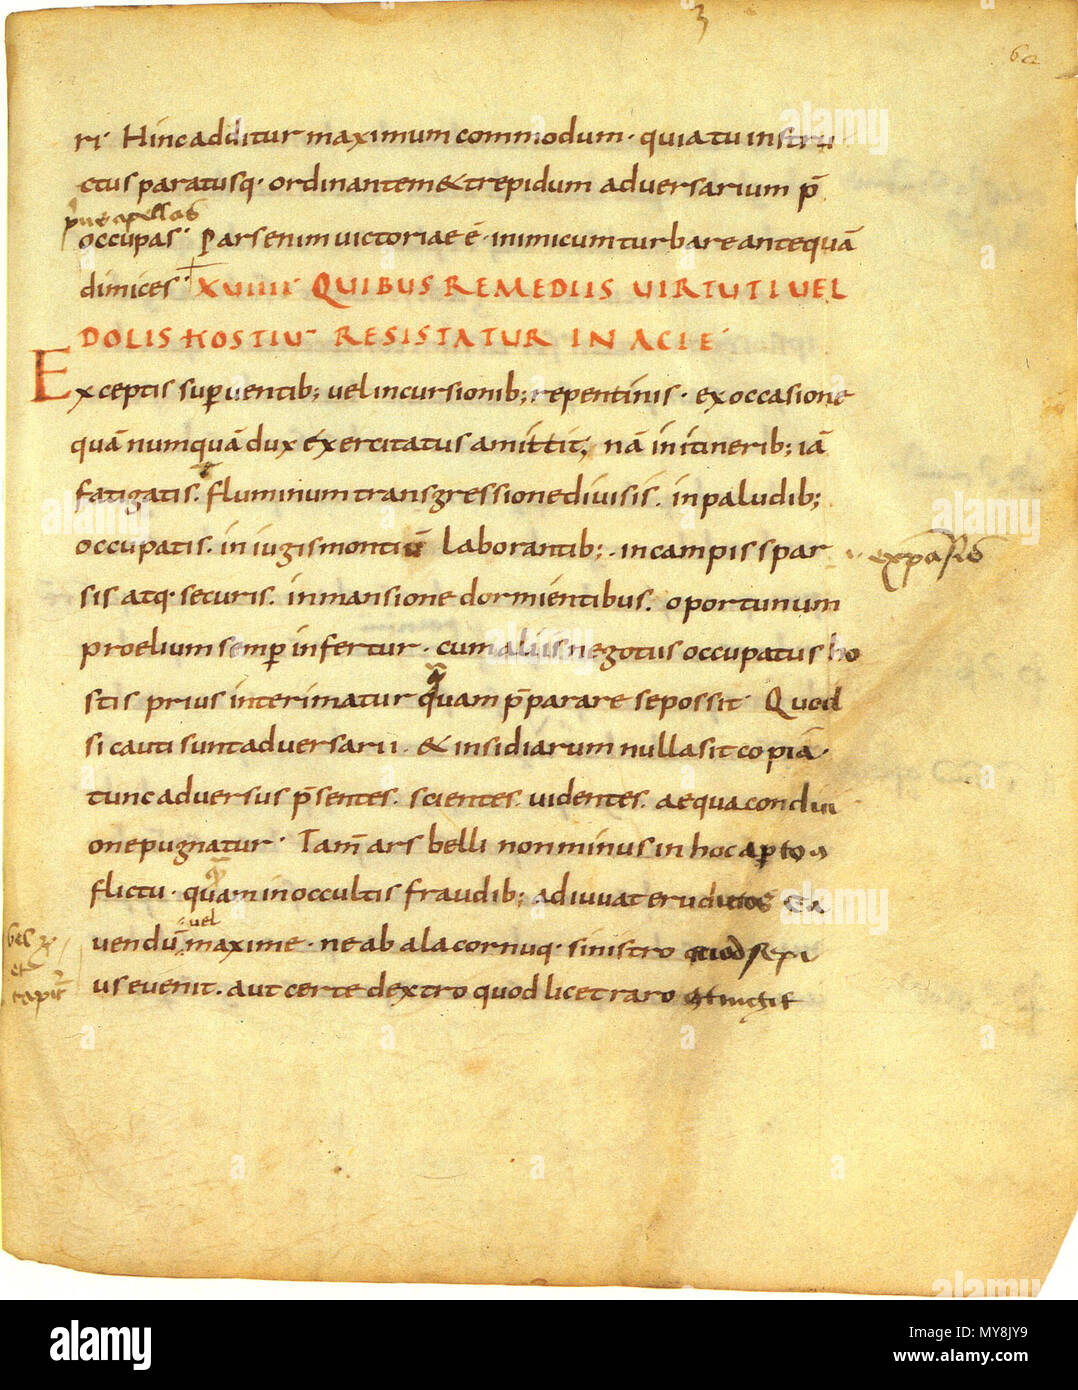 3
62
ri· Hinc additur maximum commodum· quia tu instru
ctus paratusq· ordinantem & trepidum adversarium p̄
occupas· Pars enim victoriae ē· inimicum turbare antequā
dimices· XVIIII· QUIBUS REMEDIIS VIRTUTI VEL
DOLIS HOSTIU~ RESISTATUR IN ACIE·
Exceptis supventib; vel incursionib; repentinis· ex occasione
quā numquā dux exercitatus amittit, nā in itinerib; iā
fatigatis. fluminum transgressione divisis. in paludib;
occupatis. in iugis montiū laborantib;· in campis spar
expansis
sis atq· securis. in mansione dormientibus. oportunum
proelium semp infertur· cum aliis negotiis occupatus ho
stis prius interimatur quam p̄parare se possit· Quod
si cauti sunt adversarii· & insidiarum nulla sit copia·
tunc adversus p̄sentes. scientes. videntes. aequa condici
one pugnatur· Tam̄ ars belli non minus in hoc apto
flictu· quam in occultis fraudib; adiuvat eruditos Ca
vel
vendū maxime· ne ab ala cornuq· sinistro quod sepi
et
us evenit. aut certe dextro quod licet raro
alamy
Image ID: MY8JY9
www.alamy.com